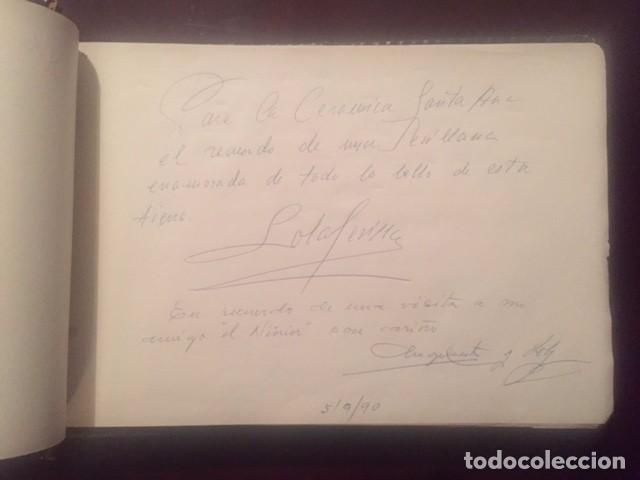 Para la Ceramica Santa Ana
el recuerdo de una Sevillana
enamorada de todo lo bello de esta
tierra.
Lola Sevilla
En recuerdo de una visita a mi
amigo "el" con cariño
y Loly
5/9/90
todocoleccion.net